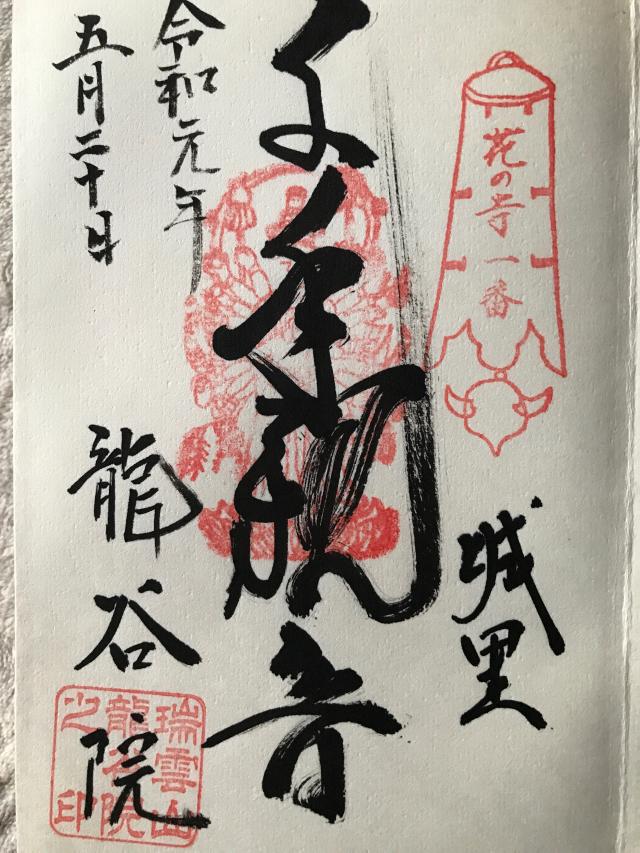 花の寺一番
城里
千手観音
令和元年
五月二十日
龍谷院
瑞雲山
龍谷院
之印